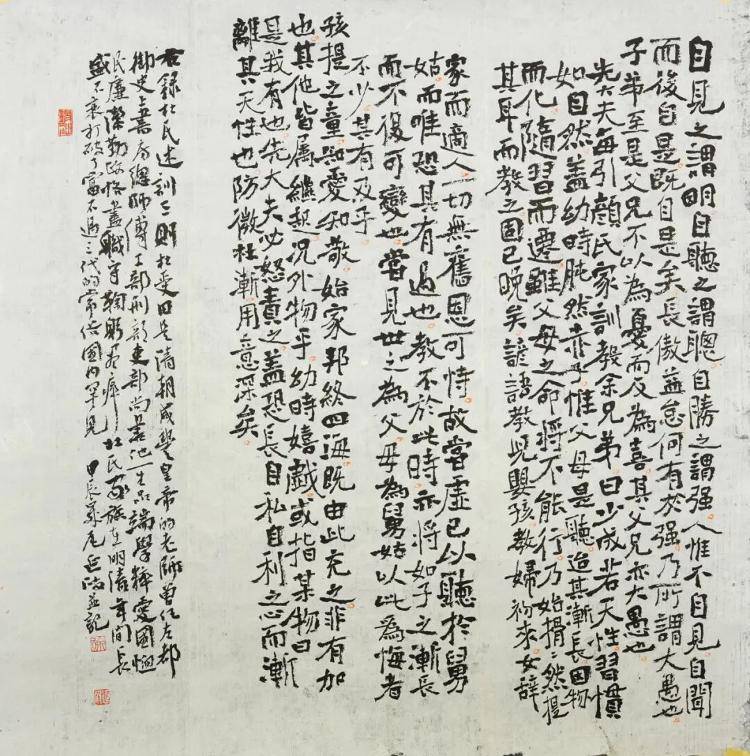 自見之謂明自聽之謂聰自勝之謂强人惟不自見自聞
而後自是既自是矣長傲益怠何有於强乃所謂大愚也
子弟至是父兄不以為憂而反為喜其父兄亦大愚也
先大夫每引顏氏家訓教余兄弟曰少成若天性習慣
如自然盖幼時肫然赤子惟父母是聽迨其漸長因物
而化隨習而遷雖父母之命將不能行乃始搰搰然提
其耳而教之固已晚矣諺語教兒嬰孩教婦初來女辭
家而適人一切無舊恩可恃故當虛己以聽於舅
姑而唯恐其有過也教不於此時亦將如子之漸長
而不復可變也嘗見世之為父母為舅姑以此為悔者
不少其有及乎
孩提之童知愛知敬始家邦終四海既由此充之非有加
也其他皆屬繼起况外物乎幼時嬉戲或指某物曰
是我有也先大夫必怒責之盖恐長自私自利之心而漸
離其天性也防微杜漸用意深矣
右錄杜氏述訓二則杜受田是清朝咸豐皇帝的老師曾任左都
御史上書房總師傅工部刑部吏部尚書他一生品端學粹愛國恤
民廉潔勤政恪盡職守鞠躬盡瘁杜氏家族在明清年間長
盛不衰打破了富不過三代的常俗國内罕見 甲辰歲尾 記